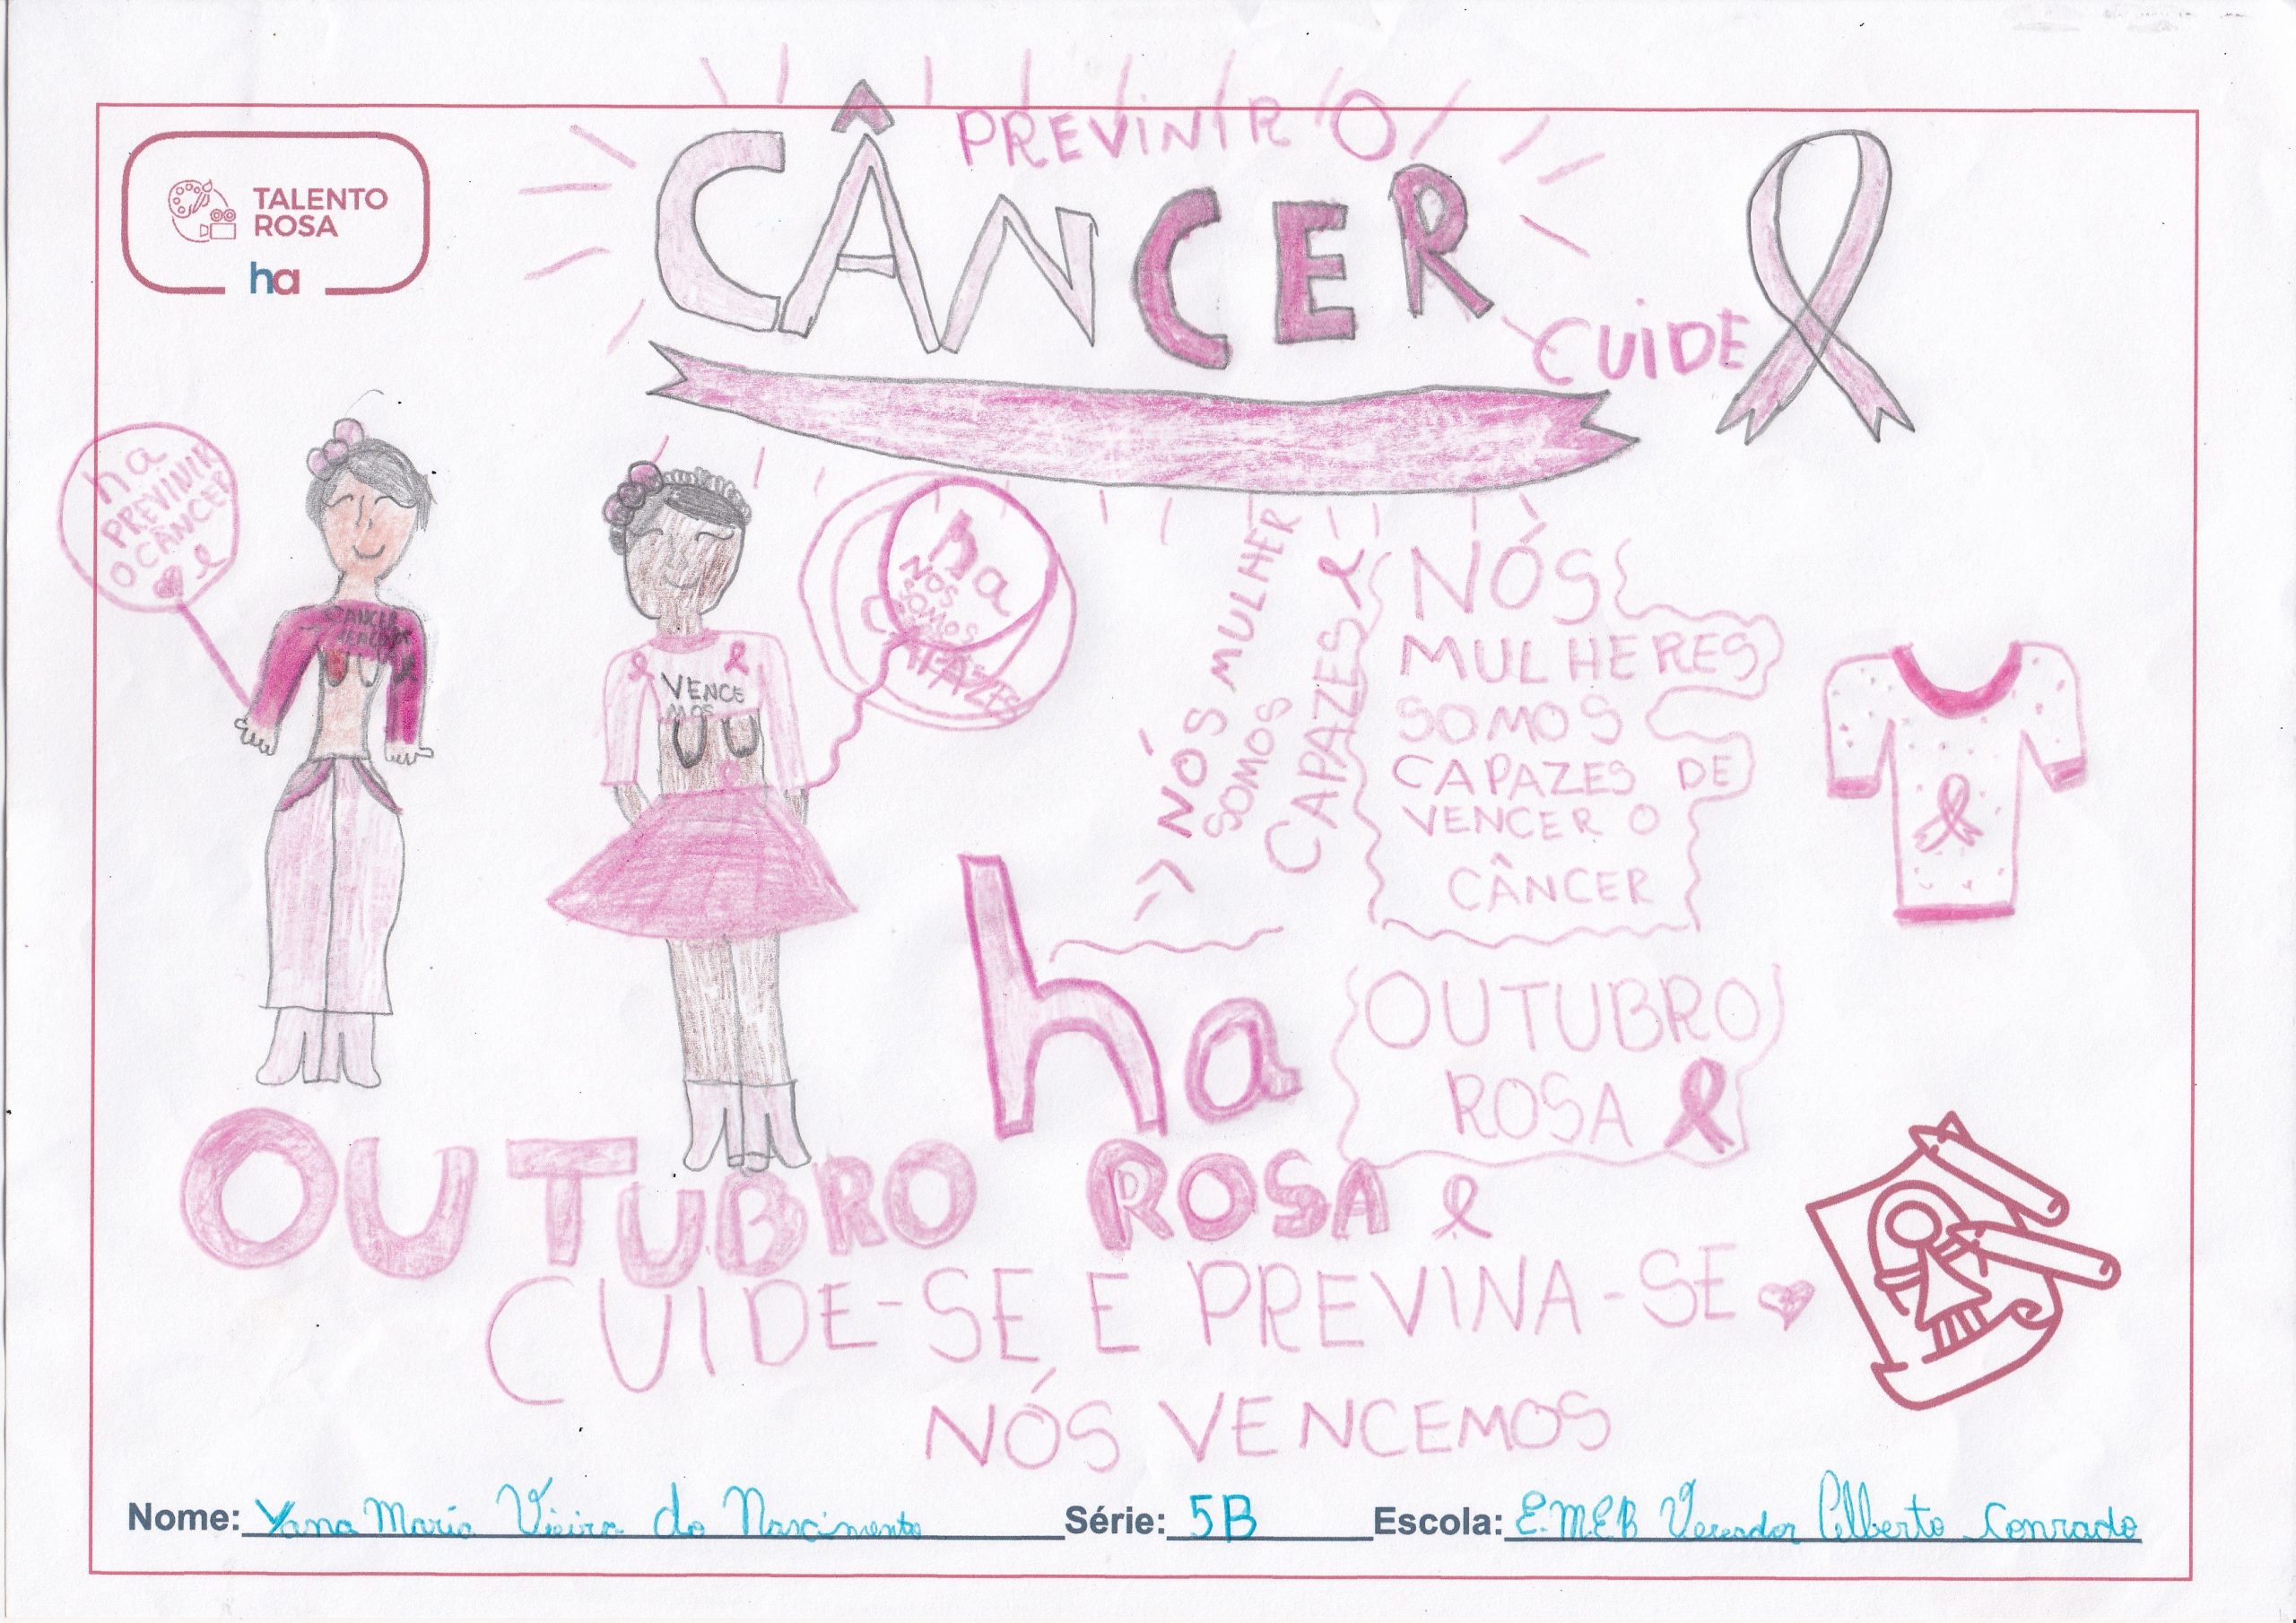 TALENTO
ROSA
ha
PREVINIR O
CÂNCER
CUIDE
ha
PREVINIR
O CÂNCER
VENCE
MOS
ha
NÓS
SOMOS
CAPAZES
NÓS MULHER
SOMOS
CAPAZES
NÓS
MULHERES
SOMOS
CAPAZES DE
VENCER O
CÂNCER
ha
OUTUBRO
ROSA
OUTUBRO ROSA
CUIDE-SE E PREVINA-SE
NÓS VENCEMOS
Nome: Yana Maria Vieira do Nascimento Série: 5B Escola: E.M.E.B Vereador Alberto Conrado